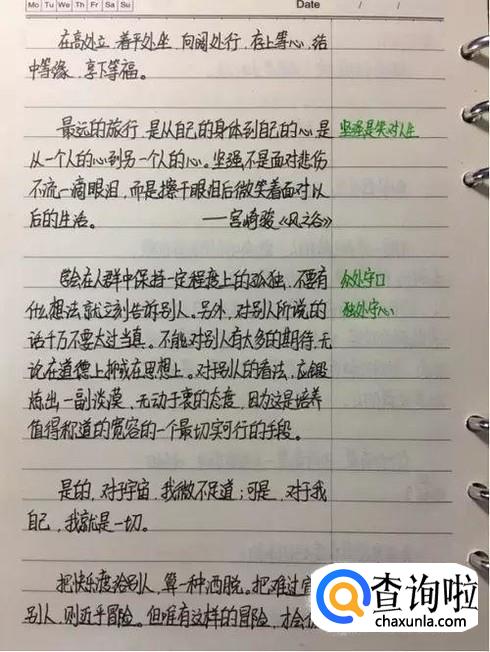 Mo Tu We Th Fr Sa Su
Date / /
在高处立，着平处坐，向阔处行，存上等心，结
中等缘，享下等福。
最远的旅行，是从自己的身体到自己的心，是
从一个人的心到另一个人的心。坚强不是面对悲伤
不流一滴眼泪，而是擦干眼泪后微笑着面对以
后的生活。 ——宫崎骏《风之谷》
坚强是笑对人生
学会在人群中保持一定程度上的孤独，不要有
什么想法就立刻告诉别人。另外，对别人所说的
话千万不要太过当真。不能对别人有太多的期待，无
论在道德上抑或在思想上。对于别人的看法，应锻
炼出一副淡漠、无动于衷的态度，因为这是培养
值得称道的宽容的一个最切实可行的手段。
众处守口
独处守心
是的，对于宇宙，我微不足道；可是，对于我
自己，我就是一切。
把快乐度给别人，算一种洒脱。把难过
别人，则近乎冒险。但唯有这样的冒险，才会
查询啦
chaxunla.com